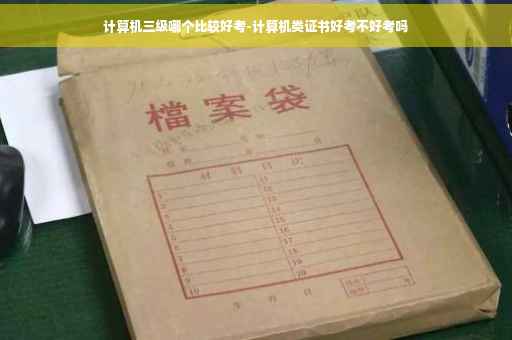 计算机三级哪个比较好考-计算机类证书好考不好考吗
檔案袋
材料目次
1 11
2 12
3 13
4 14
5 15
6 16
7 17
8 18
9 19
10 20
年 月 日